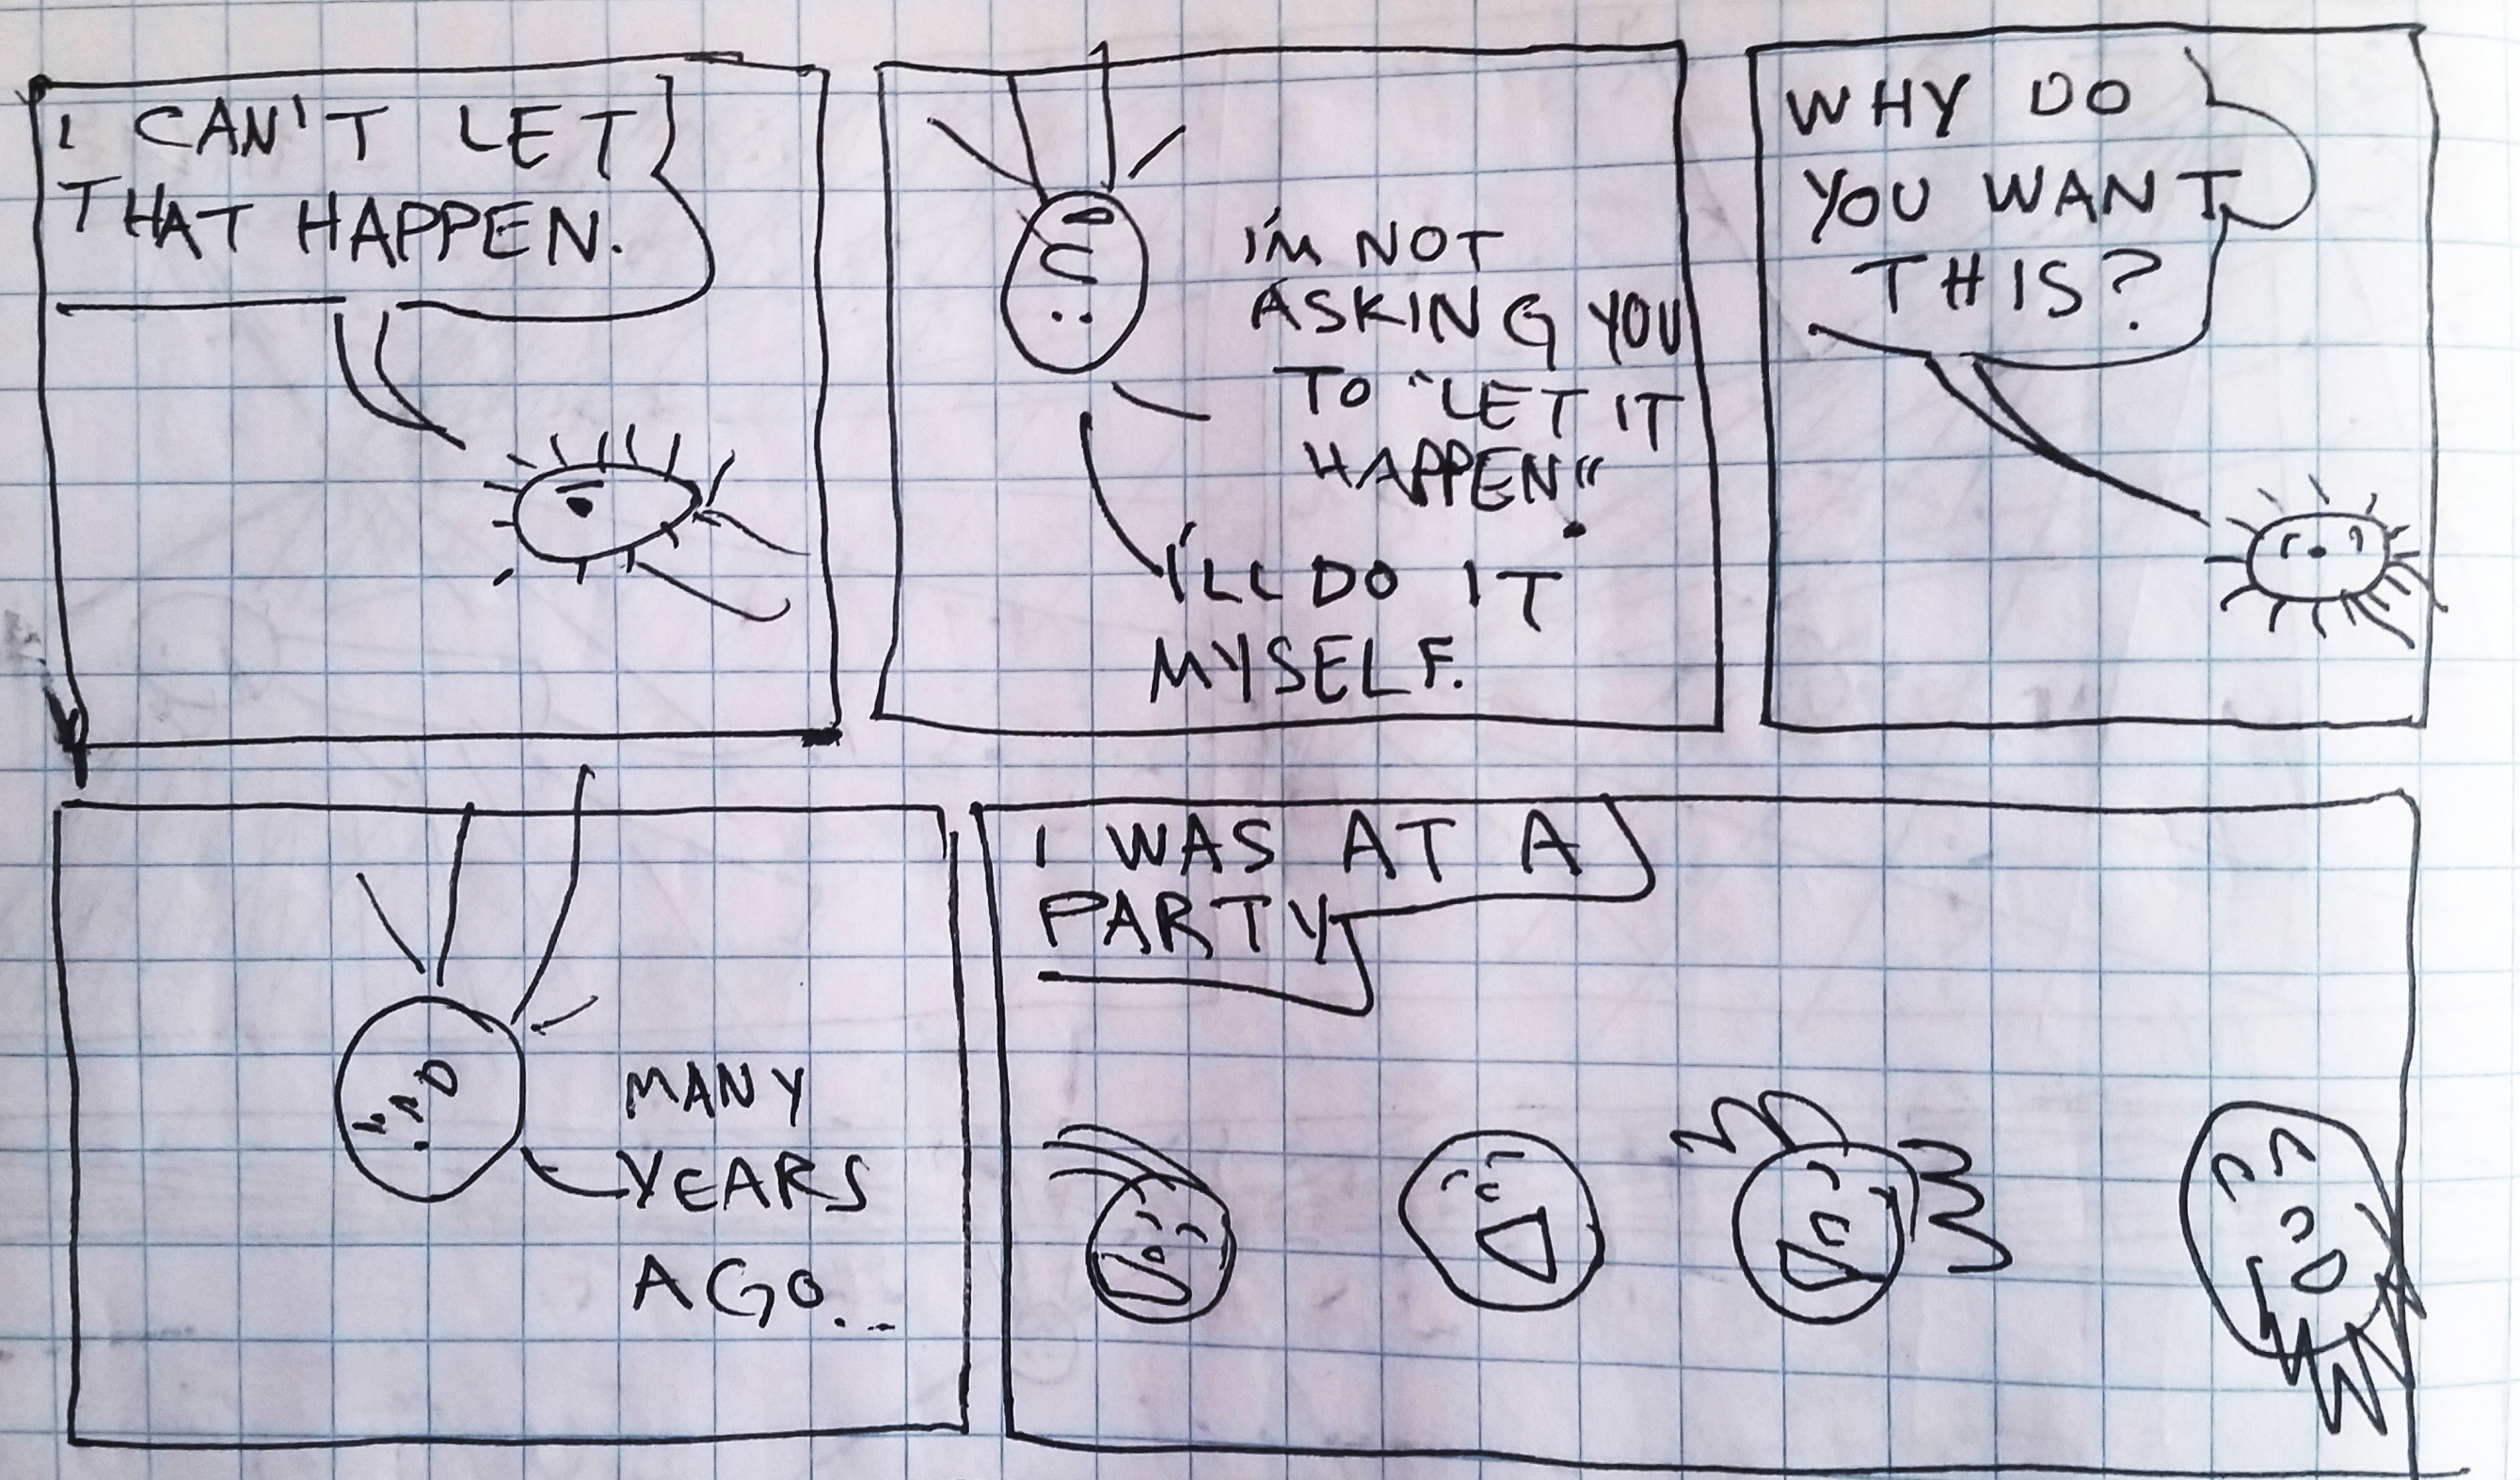 I CAN'T LET
THAT HAPPEN.
I'M NOT
ASKING YOU
TO "LET IT
HAPPEN".
I'LL DO IT
MYSELF.
WHY DO
YOU WANT
THIS?
MANY
YEARS
AGO...
I WAS AT A
PARTY